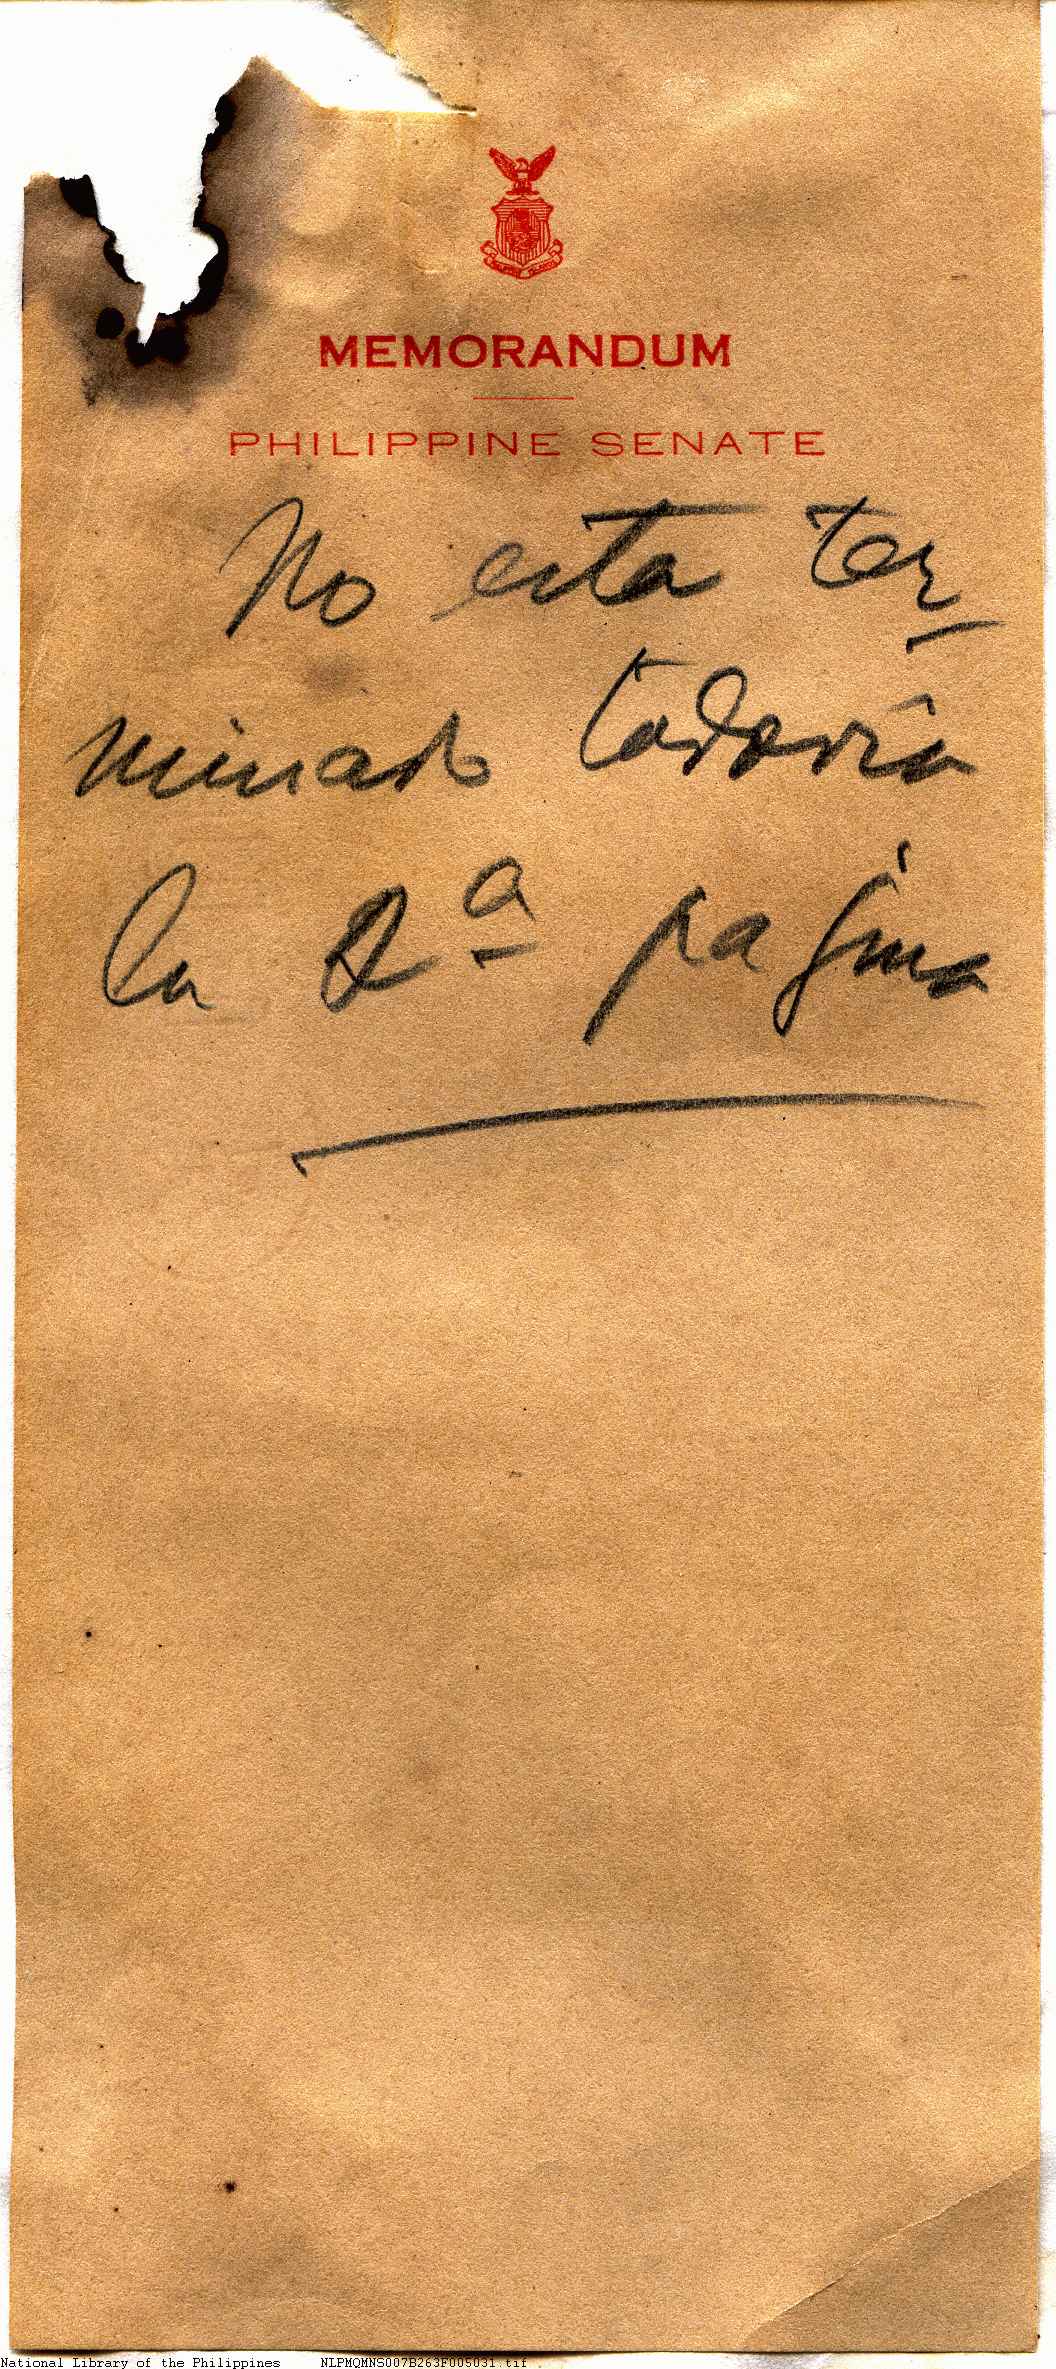 MEMORANDUM
PHILIPPINE SENATE
No esta ter-
minado todavía
la 2ª pagina
National Library of the Philippines NLPMQMNS007B263F005031.tif